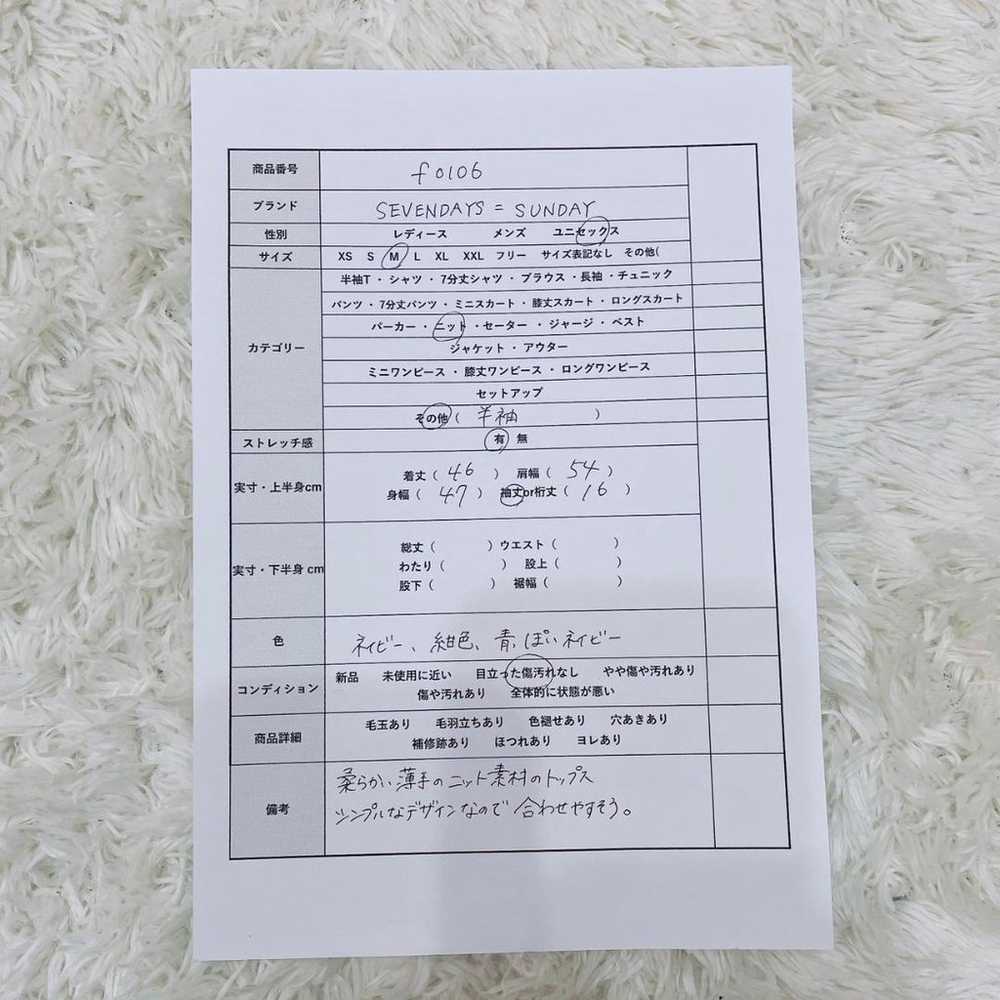 商品番号 f0106
ブランド SEVENDAYS = SUNDAY
性別 レディース メンズ ユニセックス
サイズ XS S M L XL XXL フリー サイズ表記なし その他(
カテゴリー
半袖T・シャツ・7分丈シャツ・ブラウス・長袖・チュニック
パンツ・7分丈パンツ・ミニスカート・膝丈スカート・ロングスカート
パーカー・ニット・セーター・ジャージ・ベスト
ジャケット・アウター
ミニワンピース・膝丈ワンピース・ロングワンピース
セットアップ
その他( 半袖 )
ストレッチ感 有 無
実寸・上半身cm
着丈( 46 ) 肩幅( 54 )
身幅( 47 ) 袖丈or裄丈( 16 )
実寸・下半身 cm
総丈( ) ウエスト( )
わたり( ) 股上( )
股下( ) 裾幅( )
色 ネイビー、紺色、青っぽいネイビー
コンディション
新品 未使用に近い 目立った傷汚れなし やや傷や汚れあり
傷や汚れあり 全体的に状態が悪い
商品詳細
毛玉あり 毛羽立ちあり 色褪せあり 穴あきあり
補修跡あり ほつれあり ヨレあり
備考
柔らかい薄手のニット素材のトップス
シンプルなデザインなので合わせやすそう。